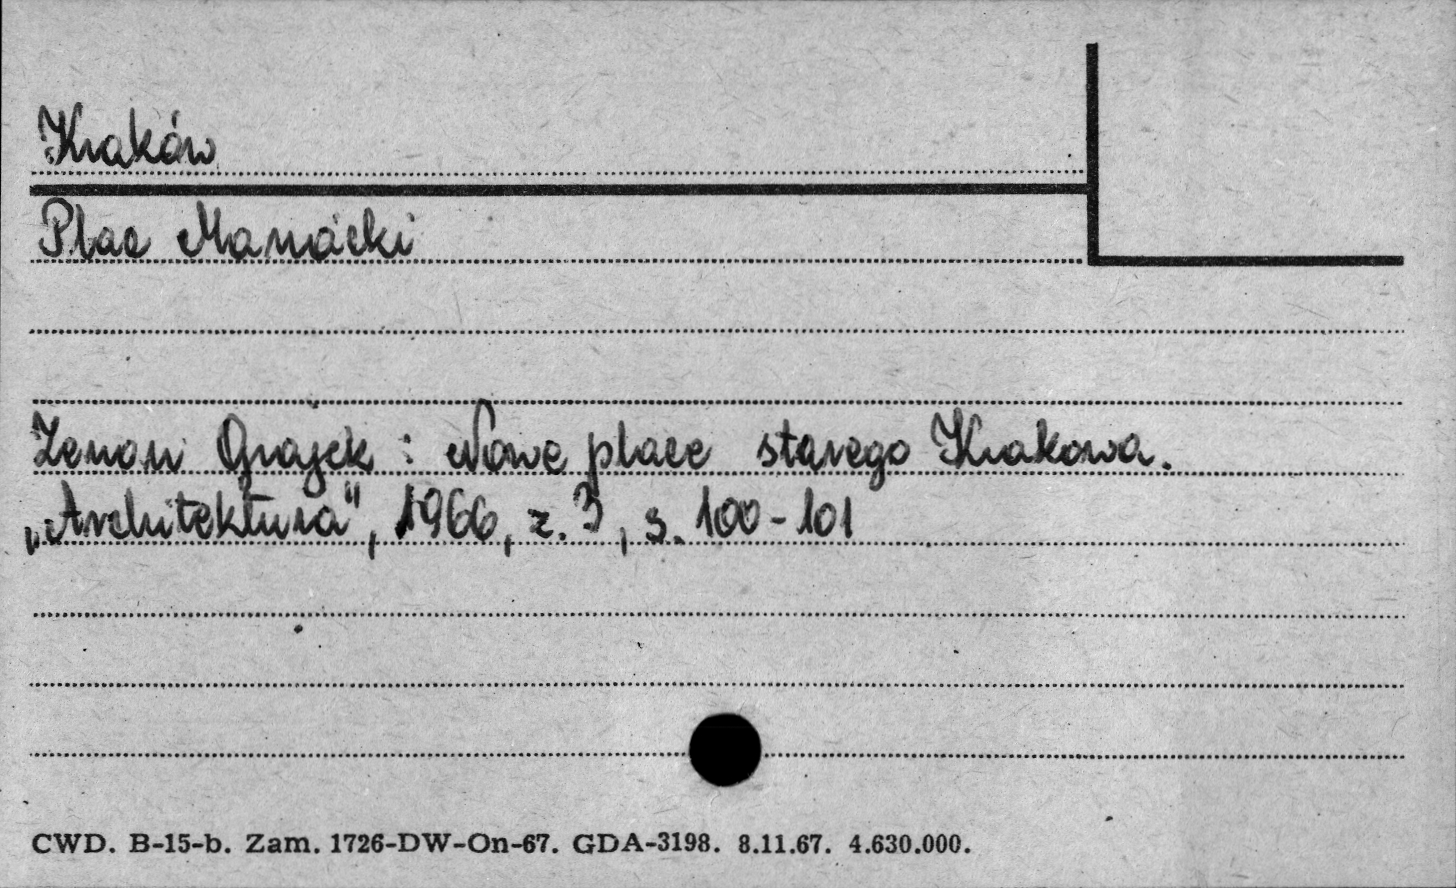 Kraków
Plac Mariacki
Zenon Grajek: Nowe place starego Krakowa.
„Architektura", 1966, z. 3, s. 100-101
CWD. B-15-b. Zam. 1726-DW-On-67. GDA-3198. 8.11.67. 4.630.000.